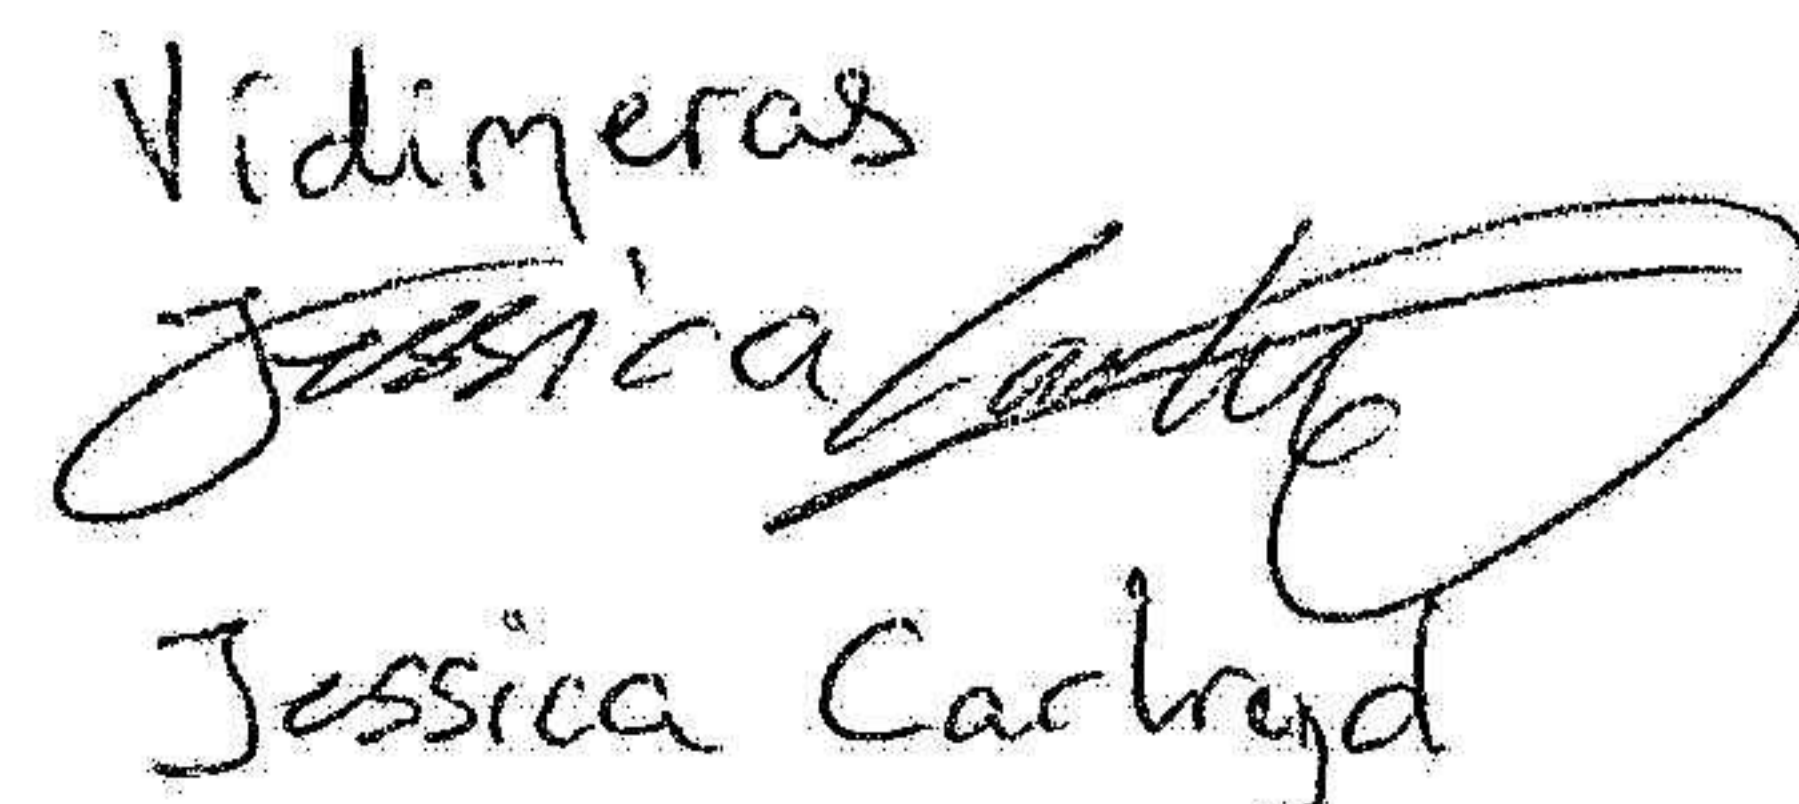 Vidimeras
Jessica
Jessica Carlryd